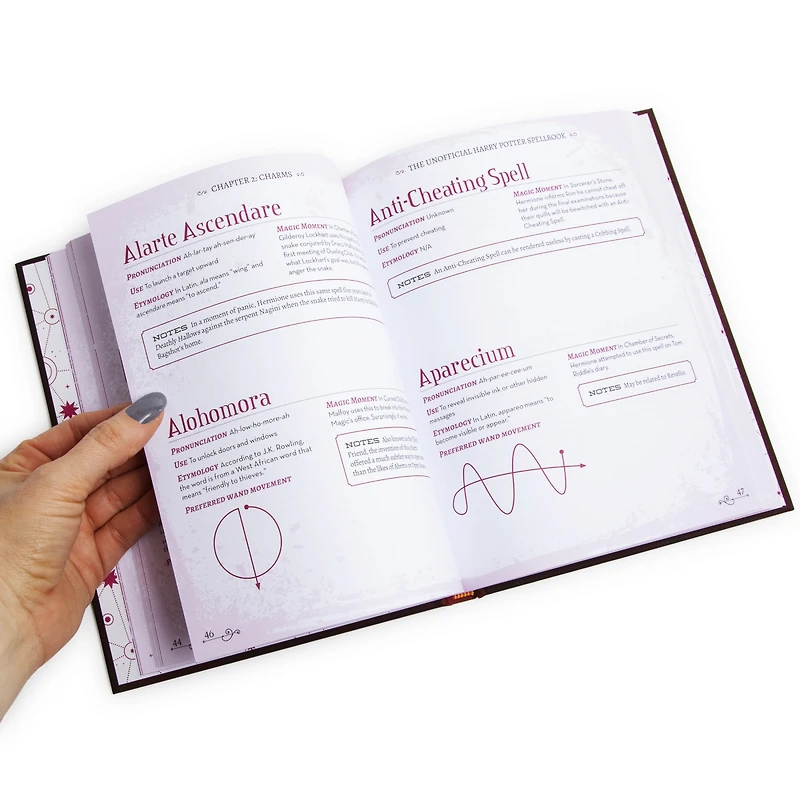 CHAPTER 2: CHARMS
Alarte Ascendare
PRONUNCIATION Ah-lar-tay ah-sen-der-ay
USE To launch a target upward
ETYMOLOGY In Latin, ala means "wing" and
ascendare means "to ascend."
MAGIC MOMENT In Chamber
Gilderoy Lockhart uses
snake conjured by Draco
first meeting of Dueling Club
what Lockhart's goal was
anger the snake.
NOTES In a moment of panic, Hermione uses this same spell five years
Deathly Hallows against the serpent Nagini when the snake tried to kill
Bagshot's home.
Alohomora
PRONUNCIATION Ah-low-ho-more-ah
USE To unlock doors and windows
ETYMOLOGY According to J.K. Rowling,
the word is from a West African word that
means "friendly to thieves."
PREFERRED WAND MOVEMENT
MAGIC MOMENT In Cursed
Malfoy uses this to break into
Magic's office. Surprisingly,
NOTES Also known as the
Friend, the invention of this
offered a much subtler way to
than the likes of Aberto
44
46
THE UNOFFICIAL HARRY POTTER SPELLBOOK
Anti-Cheating Spell
PRONUNCIATION Unknown
USE To prevent cheating
ETYMOLOGY N/A
MAGIC MOMENT In Sorcerer's Stone,
Hermione informs Ron he cannot cheat off
her during the final examinations because
their quills will be bewitched with an Anti-
Cheating Spell.
NOTES An Anti-Cheating Spell can be rendered useless by casting a Cribbing Spell.
Aparecium
PRONUNCIATION Ah-par-ee-cee-um
USE To reveal invisible ink or other hidden
messages
ETYMOLOGY In Latin, appareo means "to
become visible or appear."
PREFERRED WAND MOVEMENT
MAGIC MOMENT In Chamber of Secrets,
Hermione attempted to use this spell on Tom
Riddle's diary.
NOTES May be related to Revelio.
47